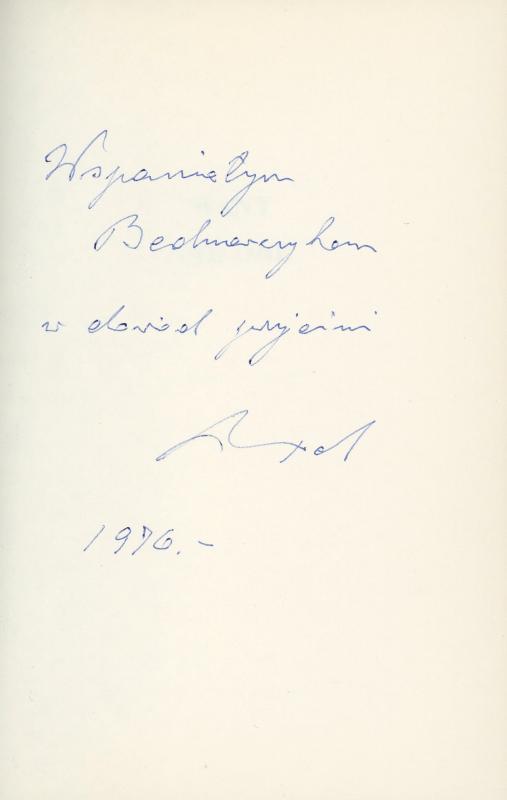 Wspaniałym
Bednarczykom
w dowód przyjaźni
1976.-